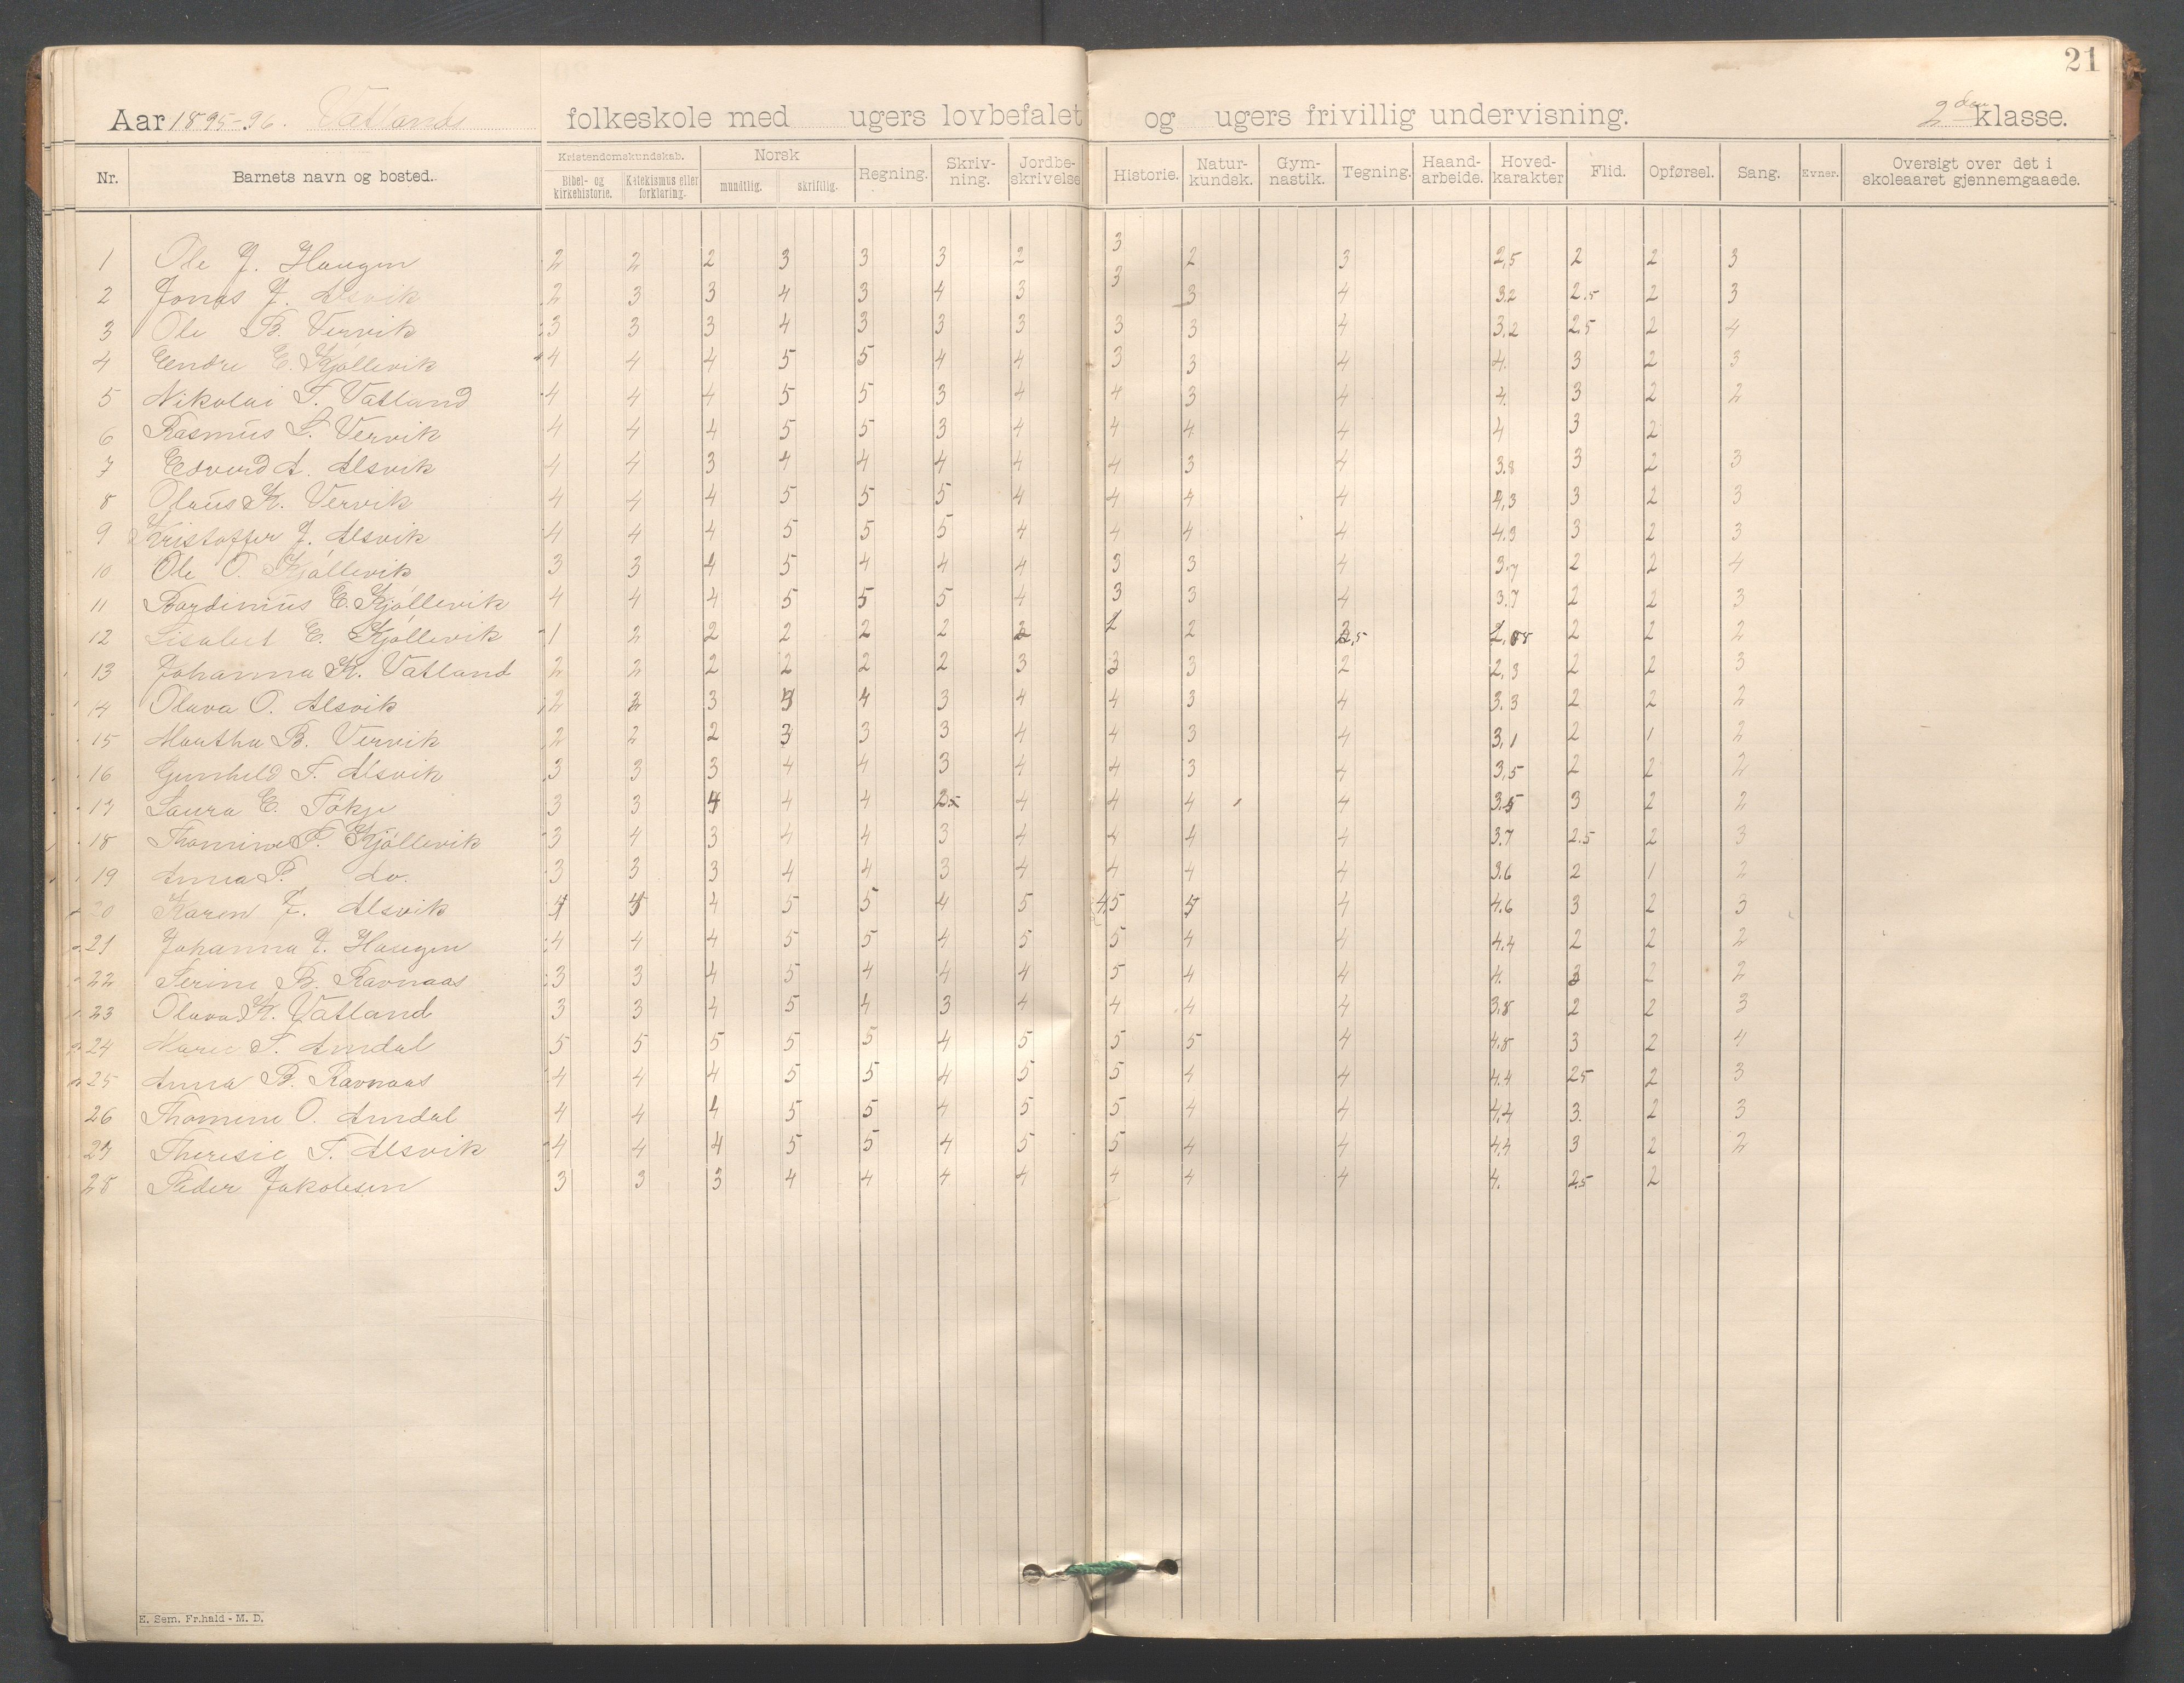 21
Aar 1895-96. Vatlands folkeskole med ugers lovbefalet og ugers frivillig undervisning. 2den klasse.
Nr. Barnets navn og bosted. Kristendomskundskab. Bibel- og kirkehistorie. Katekismus eller forklaring. Norsk mundtlig. skriftlig. Regning. Skriv-ning. Jordbe-skrivelse Historie. Natur-kundsk. Gym-nastik. Tegning. Haand-arbeide. Hoved-karakter Flid. Opførsel. Sang. Evner. Oversigt over det i skoleaaret gjennemgaaede.
1 Ole J. Haugen 2 2 2 3 3 3 2 3 2 3 2,5 2 2 3
2 Jonas J. Alsvik 2 3 3 4 3 4 3 3 3 4 3.2 2.5 2 3
3 Ole B. Vervik 3 3 3 4 3 3 3 3 3 4 3,2 2,5 2 4
4 Endre E. Kjøllevik 4 4 4 5 5 4 4 3 3 4 4. 3 2 3
5 Nikolai T. Vatland 4 4 4 5 5 3 4 4 3 4 4. 3 2 2
6 Rasmus L. Vervik 4 4 4 5 5 3 4 4 4 4 4 3 2
7 Edvard A. Alsvik 4 4 3 4 4 4 4 4 3 4 3.8 3 2 3
8 Olaus K. Vervik 4 4 4 5 5 5 4 4 4 4 4,3 3 2 3
9 Kristoffer J. Alsvik 4 4 4 5 5 5 4 4 4 4 4.3 3 2 3
10 Ole O. Kjøllevik 3 3 4 5 4 4 4 3 3 4 3.7 2 2 4
11 Bardinius E. Kjøllevik 4 4 4 5 5 5 4 3 3 4 3.7 2 2 3
12 Lisabet E. Kjøllevik 1 2 2 2 2 2 2 2 2 2 2
13 Johanna K. Vatland 2 2 2 2 2 2 3 3 3 2 2,3 2 2 3
14 Olava O. Alsvik 2 2 3 3 4 3 4 4 3 4 3.3 2 2 2
15 Martha B. Vervik 2 2 2 3 3 3 4 4 3 4 3,1 2 1 2
16 Gunhild T. Alsvik 3 3 3 4 4 3 4 4 3 4 3,5 2 2 2
17 Laura E. Tøkje 3 3 4 4 4 2.5 4 4 4 4 3.5 3 2 2
18 Thomine T. Kjøllevik 3 4 3 4 4 3 4 4 4 4 3.7 2.5 2 3
19 Anna P. do. 3 3 3 4 4 3 4 4 4 4 3.6 2 1 2
20 Karen J. Alsvik 4 5 5 4 5 4.5 4 4.6 3 2 3
21 Johanna J. Haugen 4 4 4 5 5 4 5 5 4 4 4.4 2 2 2
22 Serine B. Ravnaas 3 3 4 5 4 4 4 5 4 4 4. 3 2 2
23 Olava K. Vatland 3 3 4 5 4 3 4 4 4 4 3,8 2 2 3
24 Marie T. Amdal 5 5 5 5 5 4 5 5 5 4 4.8 3 2 4
25 Anna B. Ravnaas 4 4 4 5 5 4 5 5 4 4 4.4 2.5 2 3
26 Thomine O. Amdal 4 4 4 5 5 4 5 5 4 4 4,4 3. 2 3
27 Theresie T. Alsvik 4 4 4 5 5 4 5 5 4 4 4.4 3 2 2
28 Peder Jakobsen 3 3 3 4 4 4 4 4 4 4 4. 2.5 2
E. Sem. Fr.hald - M. D.